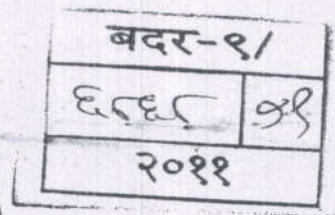 बदर-९/
६८६८ ५९
२०११